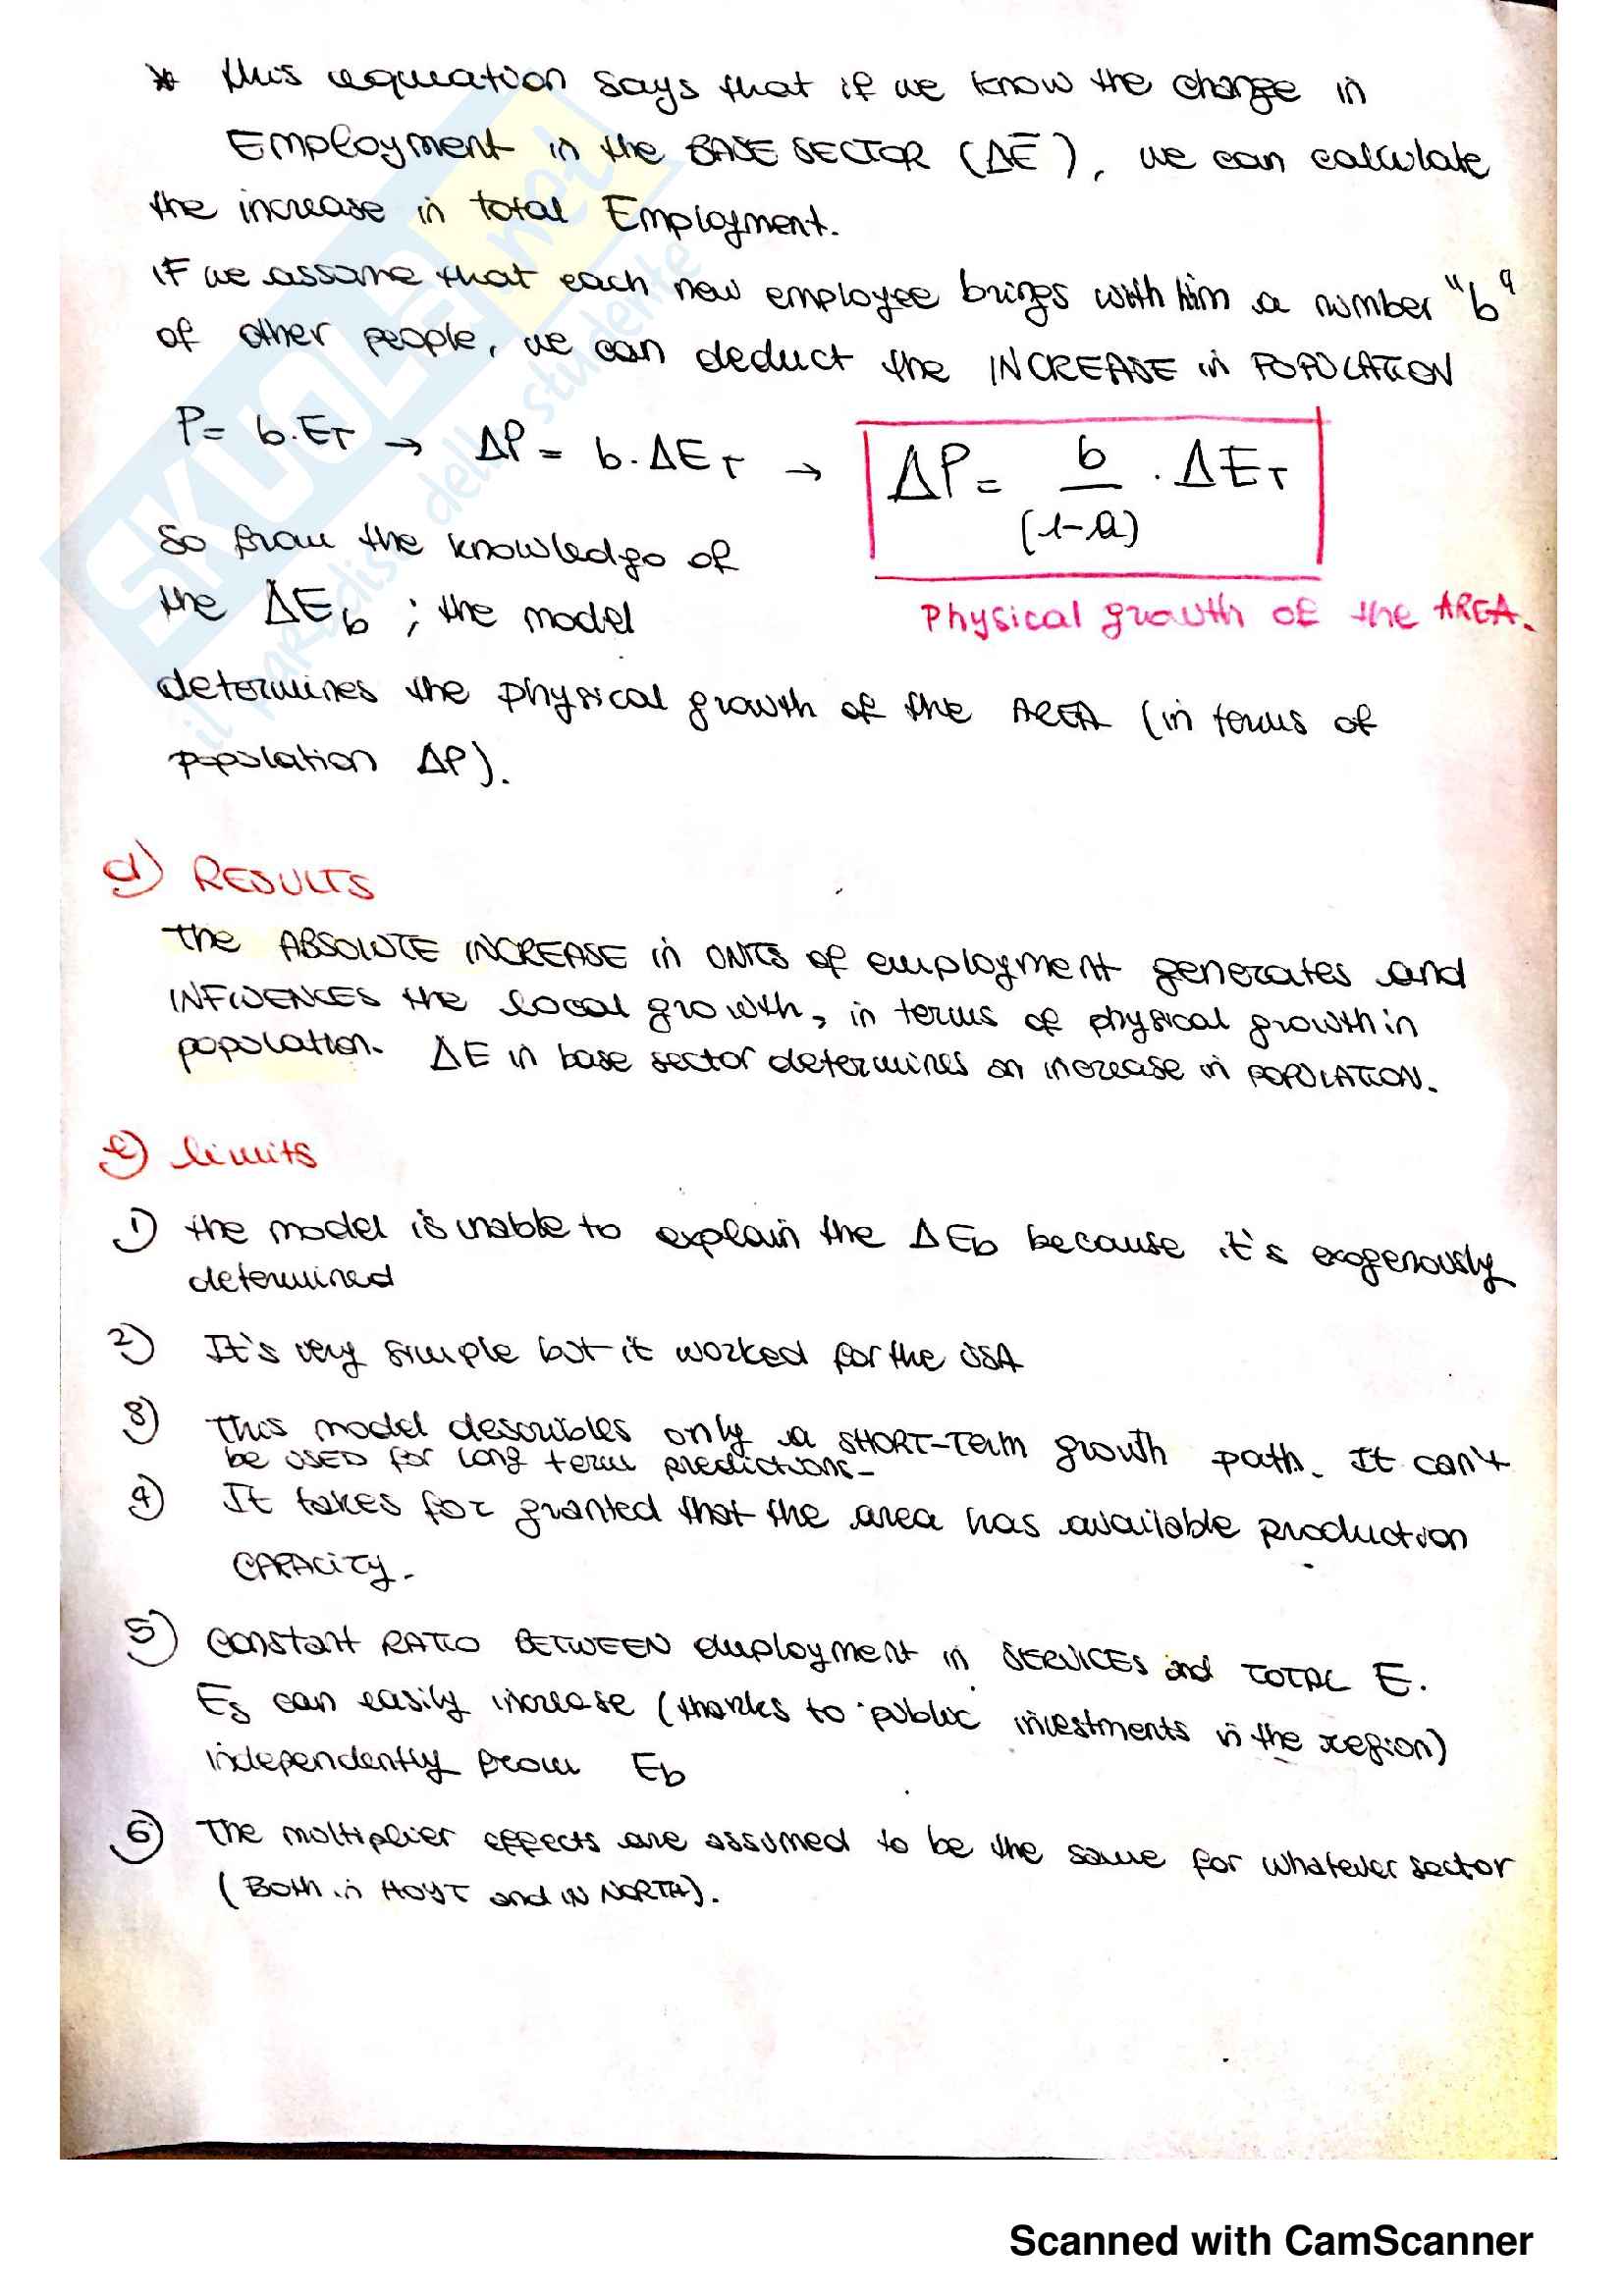 * this equation says that if we know the change in
Employment in the BASE SECTOR (ΔĒ), we can calculate
the increase in total Employment.
IF we assume that each new employee brings with him a number "b"
of other people, we can deduct the INCREASE in POPULATION
P = b·E_T → ΔP = b·ΔE_T → ΔP = b/(1-a) · ΔE_T
So from the knowledge of
Physical growth of the AREA.
the ΔE_b ; the model
determines the physical growth of the AREA (in terms of
population ΔP).
d) RESULTS
The ABSOLUTE INCREASE in UNITS of employment generates and
INFLUENCES the local growth, in terms of physical growth in
population. ΔE in base sector determines an increase in POPULATION.
e) limits
1) the model is unable to explain the ΔE_b because it's exogenously
determined
2) It's very simple but it worked for the USA
3) This model describles only a SHORT-Term growth path. It can't
be USED for long term predictions-
4) It takes for granted that the area has available production
CAPACITY.
5) Constant RATIO BETWEEN employment in SERVICES and TOTAL E.
E_s can easily increase (thanks to public investments in the region)
independently from E_b
6) The multiplier effects are assumed to be the same for whatever sector
(Both in HOYT and IN NORTH).
SKUOLA.net
il paradiso dello studente
Scanned with CamScanner